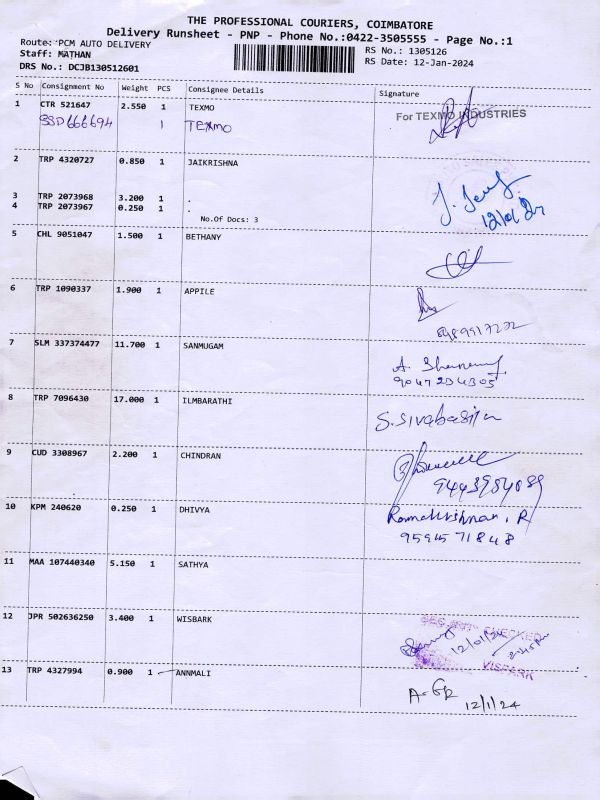 THE PROFESSIONAL COURIERS, COIMBATORE
Delivery Runsheet - PNP - Phone No.:0422-3505555 - Page No.:1
Route: PCM AUTO DELIVERY
RS No.: 1305126
Staff: MATHAN
RS Date: 12-Jan-2024
DRS No.: DCJB130512601
S No Consignment No Weight PCS Consignee Details Signature
1 CTR 521647 2.550 1 TEXMO
For TEXMO INDUSTRIES
SSD666694 1 TEXMO
2 TRP 4320727 0.850 1 JAIKRISHNA
3 TRP 2073968 3.200 1 .
4 TRP 2073967 0.250 1 .
No.Of Docs: 3
12/01/24
5 CHL 9051047 1.500 1 BETHANY
6 TRP 1090337 1.900 1 APPILE
7 SLM 337374477 11.700 1 SANMUGAM
9047204305
8 TRP 7096430 17.000 1 ILMBARATHI
9 CUD 3308967 2.200 1 CHINDRAN
10 KPM 240620 0.250 1 DHIVYA
Ramakrishnan. R
11 MAA 107440340 5.150 1 SATHYA
12 JPR 502636250 3.400 1 WISBARK
CHECKED
12/01/24
13 TRP 4327994 0.900 1 ANNMALI
12/1/24